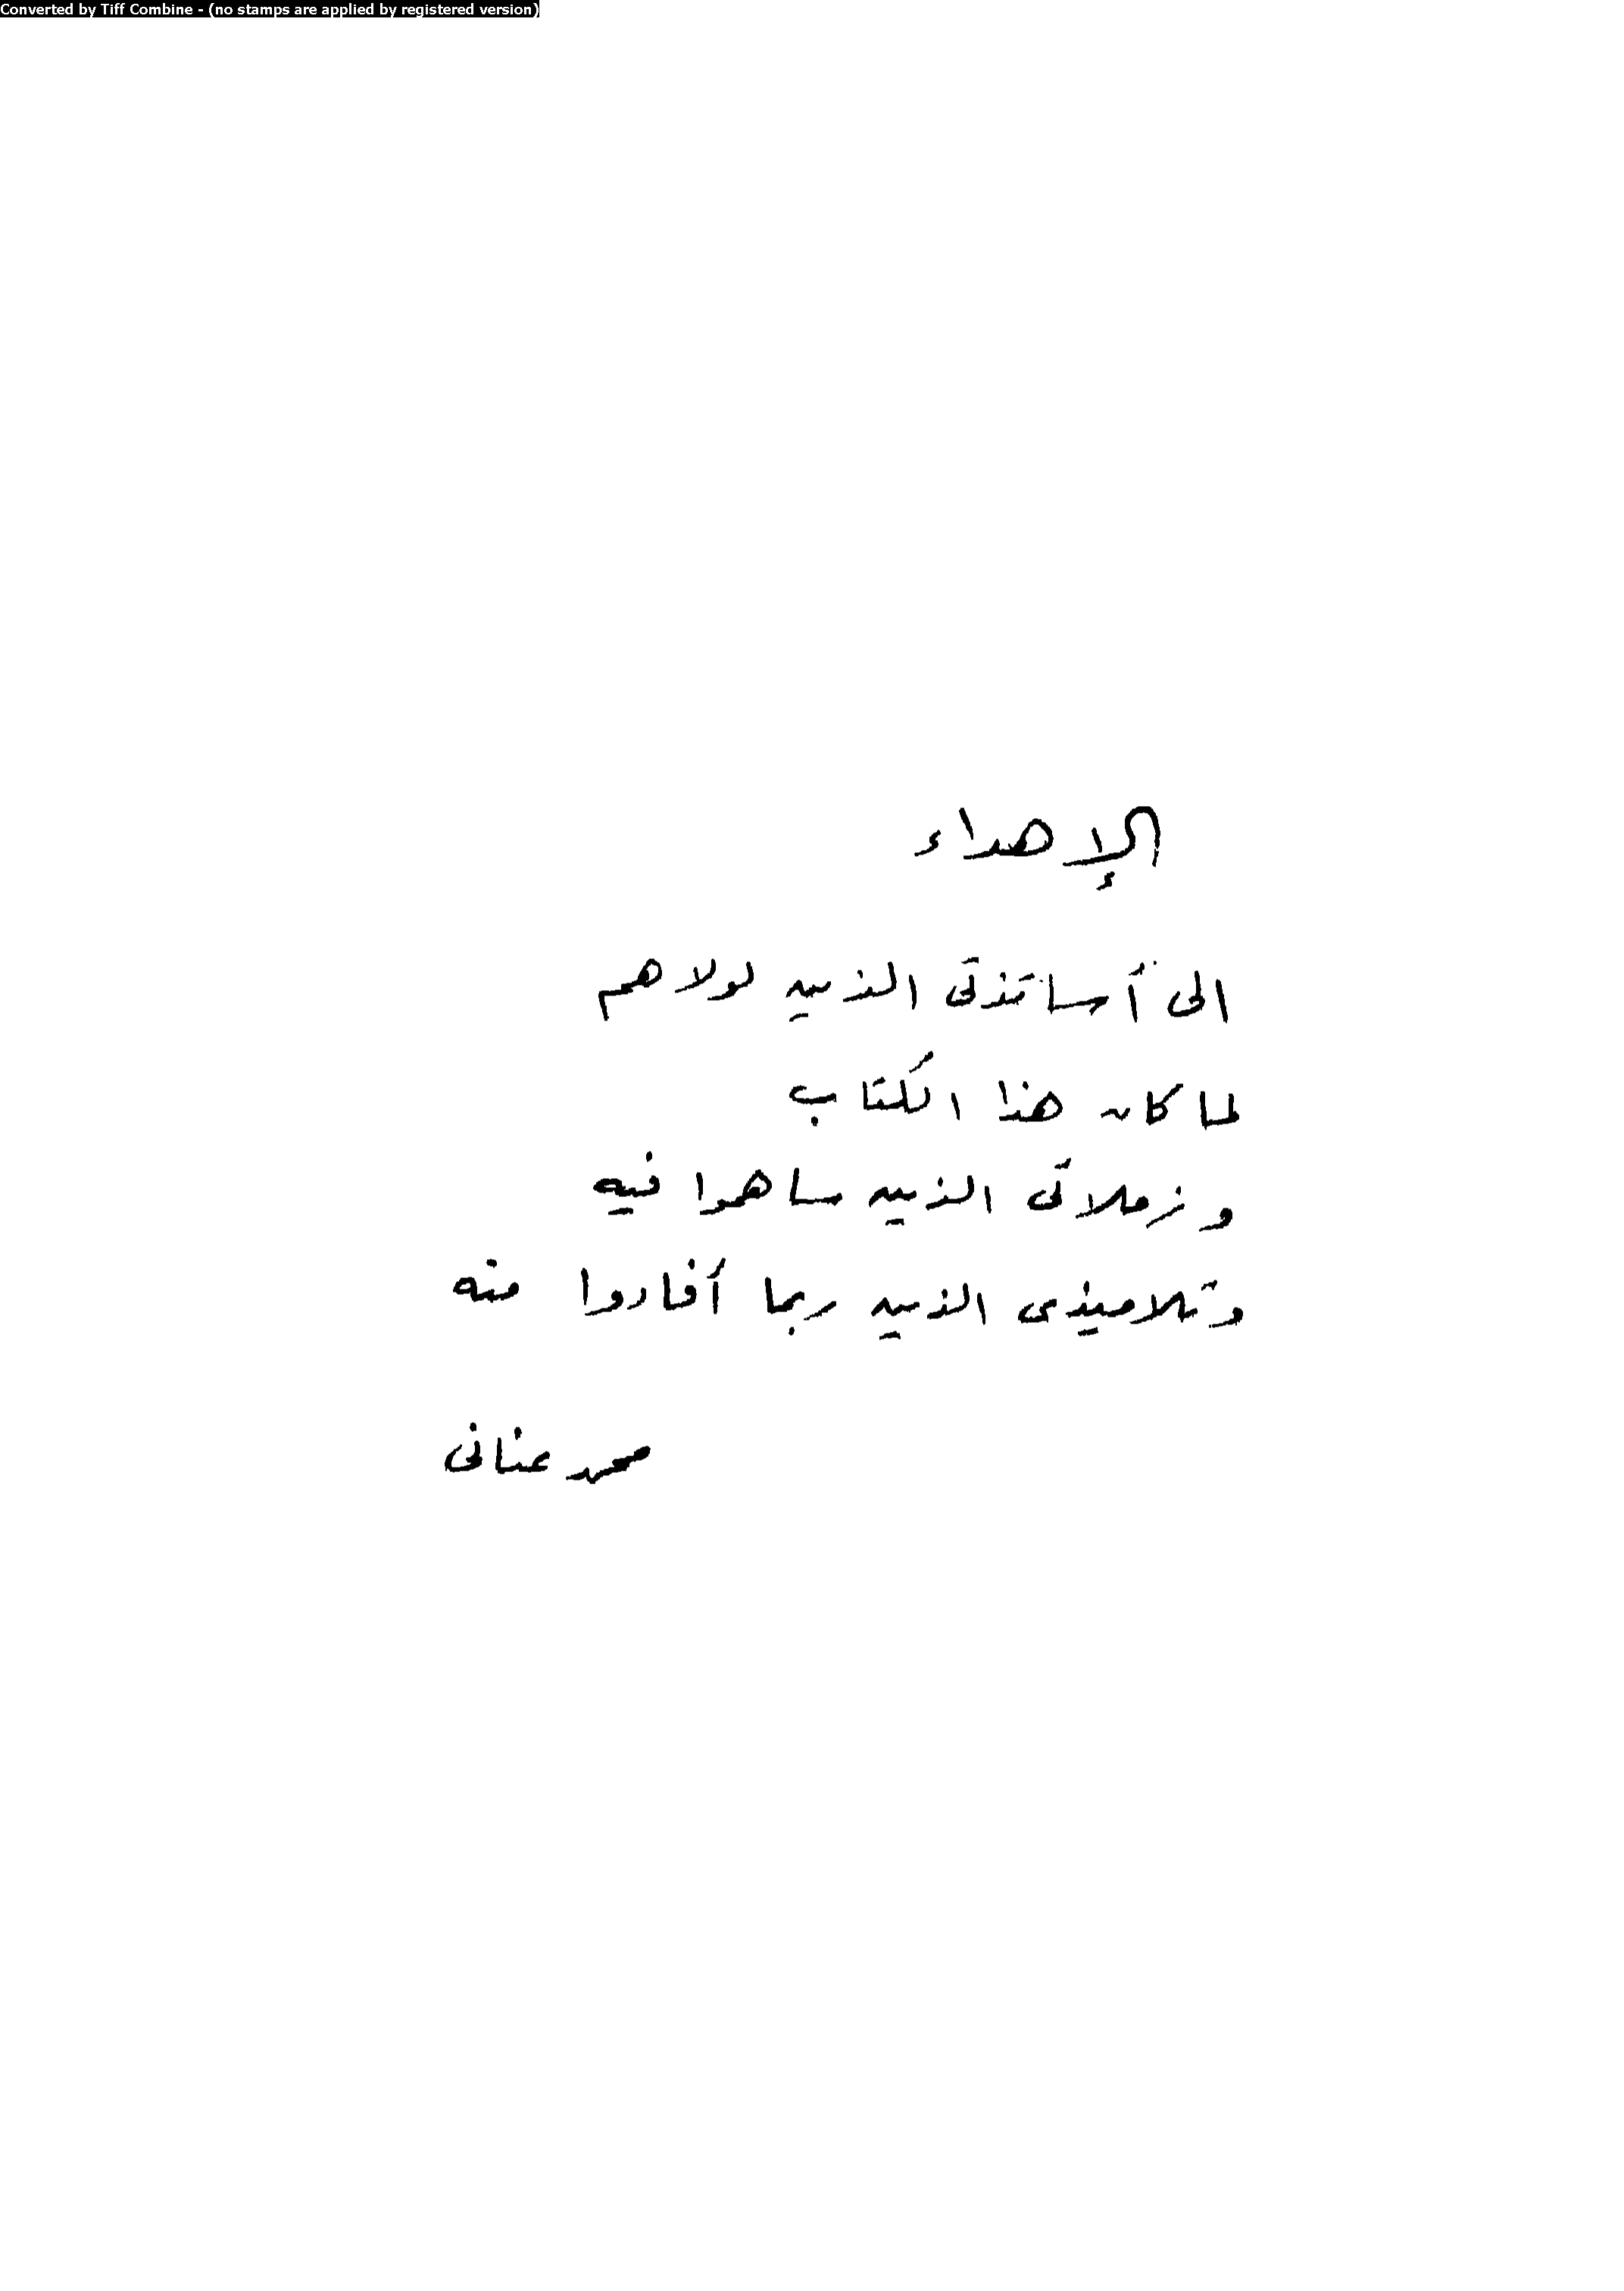 Converted by Tiff Combine - (no stamps are applied by registered version)
الإهداء
الى أساتذتى الذين لولاهم
لما كان هذا الكتاب
وزملائى الذين ساهموا فيه
وتلاميذى الذين ربما أفادوا منه
محمد عنانى